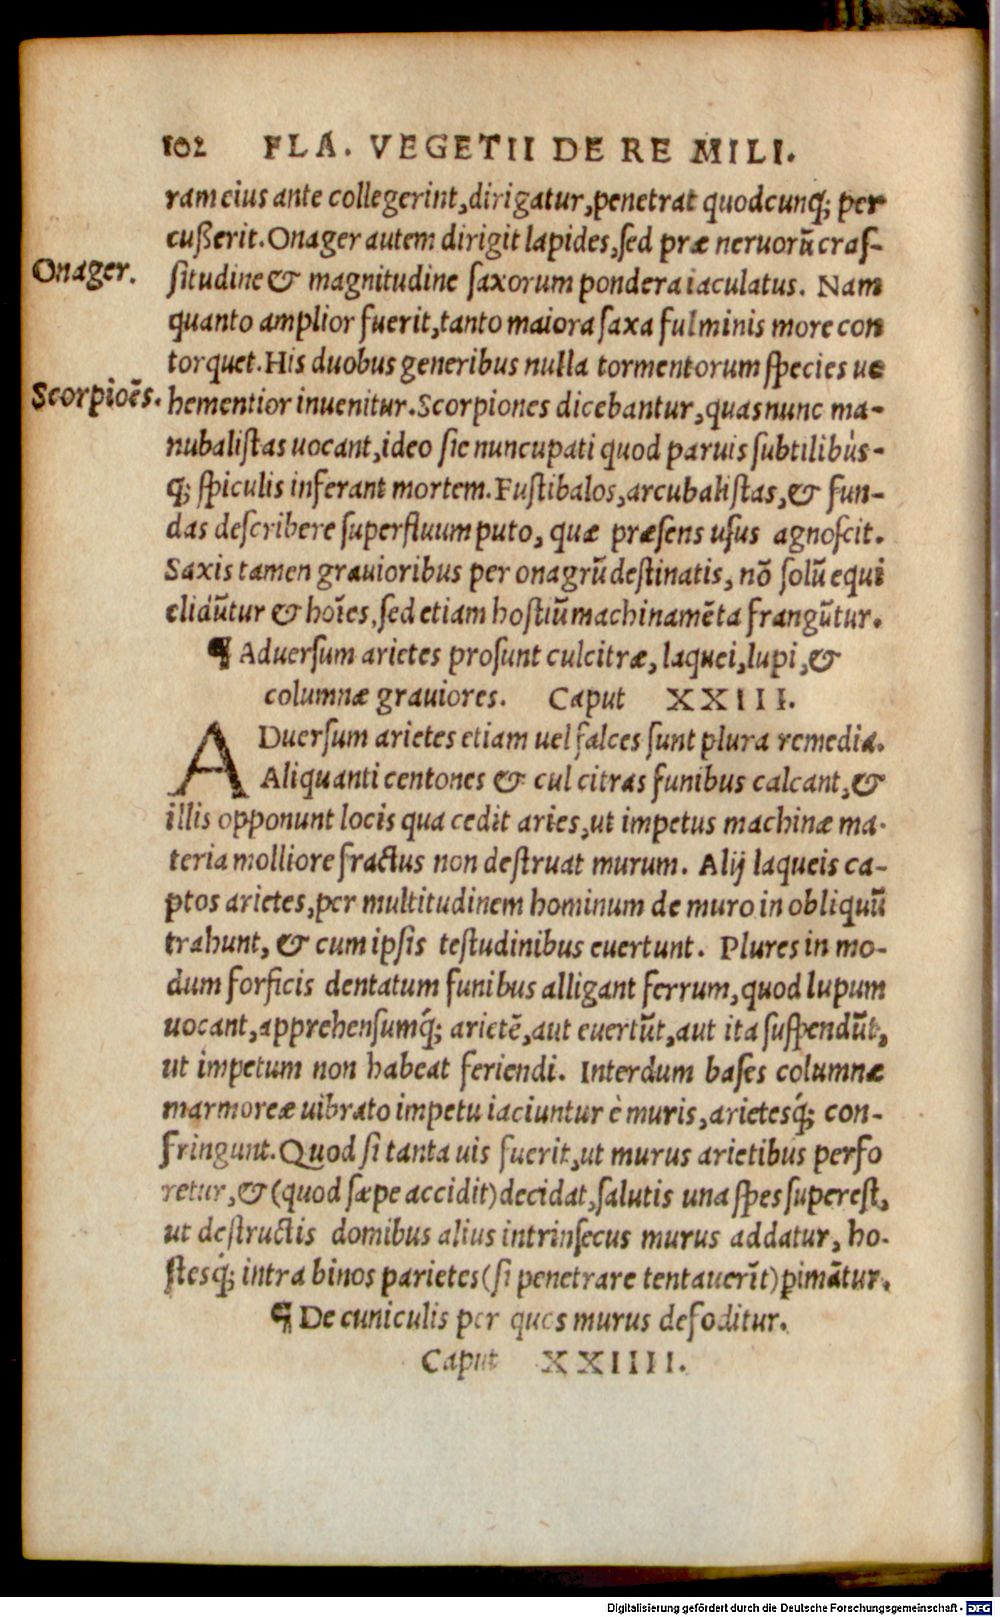 102 FLA. VEGETII DE RE MILI.
ram eius ante collegerint, dirigatur, penetrat quodcunq; per
cußerit. Onager autem dirigit lapides, sed præ neruorũ cras-
Onager.
situdine & magnitudine saxorum pondera iaculatus. Nam
quanto amplior fuerit, tanto maiora saxa fulminis more con
torquet. His duobus generibus nulla tormentorum species ue
Scorpiões.
hementior inuenitur. Scorpiones dicebantur, quas nunc ma-
nubalistas uocant, ideo sic nuncupati quod paruis subtilibus-
q; spiculis inferant mortem. Fustibalos, arcubalistas, & fun-
das describere superfluum puto, quæ præsens usus agnoscit.
Saxis tamen grauioribus per onagrũ destinatis, nõ solũ equi
elidũtur & hoĩes, sed etiam hostiũ machinamẽta frangũtur.
¶ Aduersum arietes prosunt culcitræ, laquei, lupi, &
columnæ grauiores. Caput XXIII.
ADuersum arietes etiam uel falces sunt plura remedia.
Aliquanti centones & culcitras funibus calcant, &
illis opponunt locis qua cedit aries, ut impetus machinæ ma-
teria molliore fractus non destruat murum. Alij laqueis ca-
ptos arietes, per multitudinem hominum de muro in obliquũ
trahunt, & cum ipsis testudinibus euertunt. Plures in mo-
dum forficis dentatum funibus alligant ferrum, quod lupum
uocant, apprehensumq́; arietẽ, aut euertũt, aut ita suspendũt,
ut impetum non habeat feriendi. Interdum bases columnæ
marmoreæ uibrato impetu iaciuntur è muris, arietesq́; con-
fringunt. Quod si tanta uis fuerit, ut murus arietibus perfo
retur, & (quod sæpe accidit) decidat, salutis una spes superest,
ut destructis domibus alius intrinsecus murus addatur, ho-
stesq́; intra binos parietes (si penetrare tentauerĩt) ꝑimãtur.
¶ De cuniculis per quos murus defoditur.
Caput XXIIII.
Digitalisierung gefördert durch die Deutsche Forschungsgemeinschaft - DFG